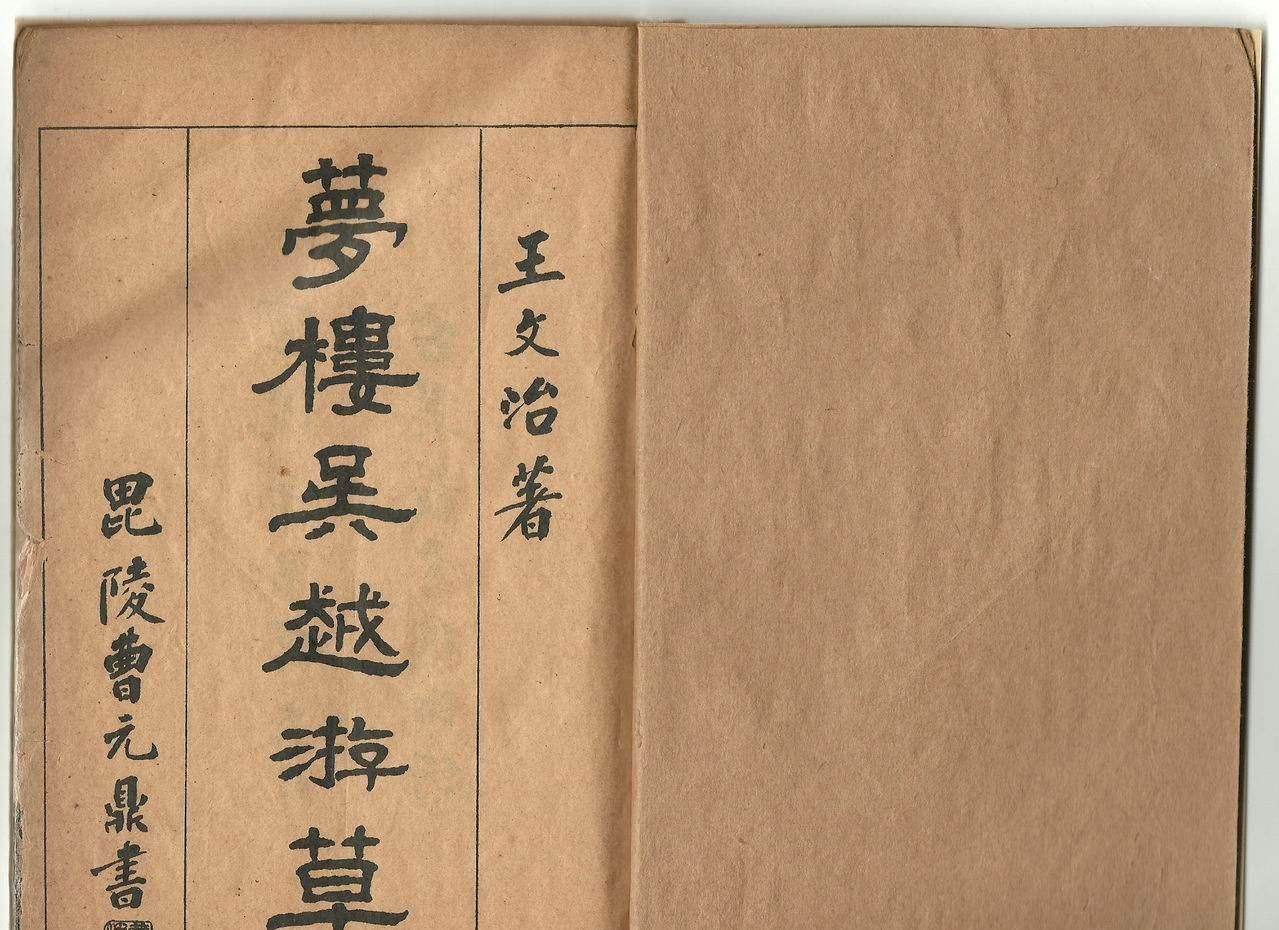 王文治著
夢樓吳越游草
毘陵曹元鼎書